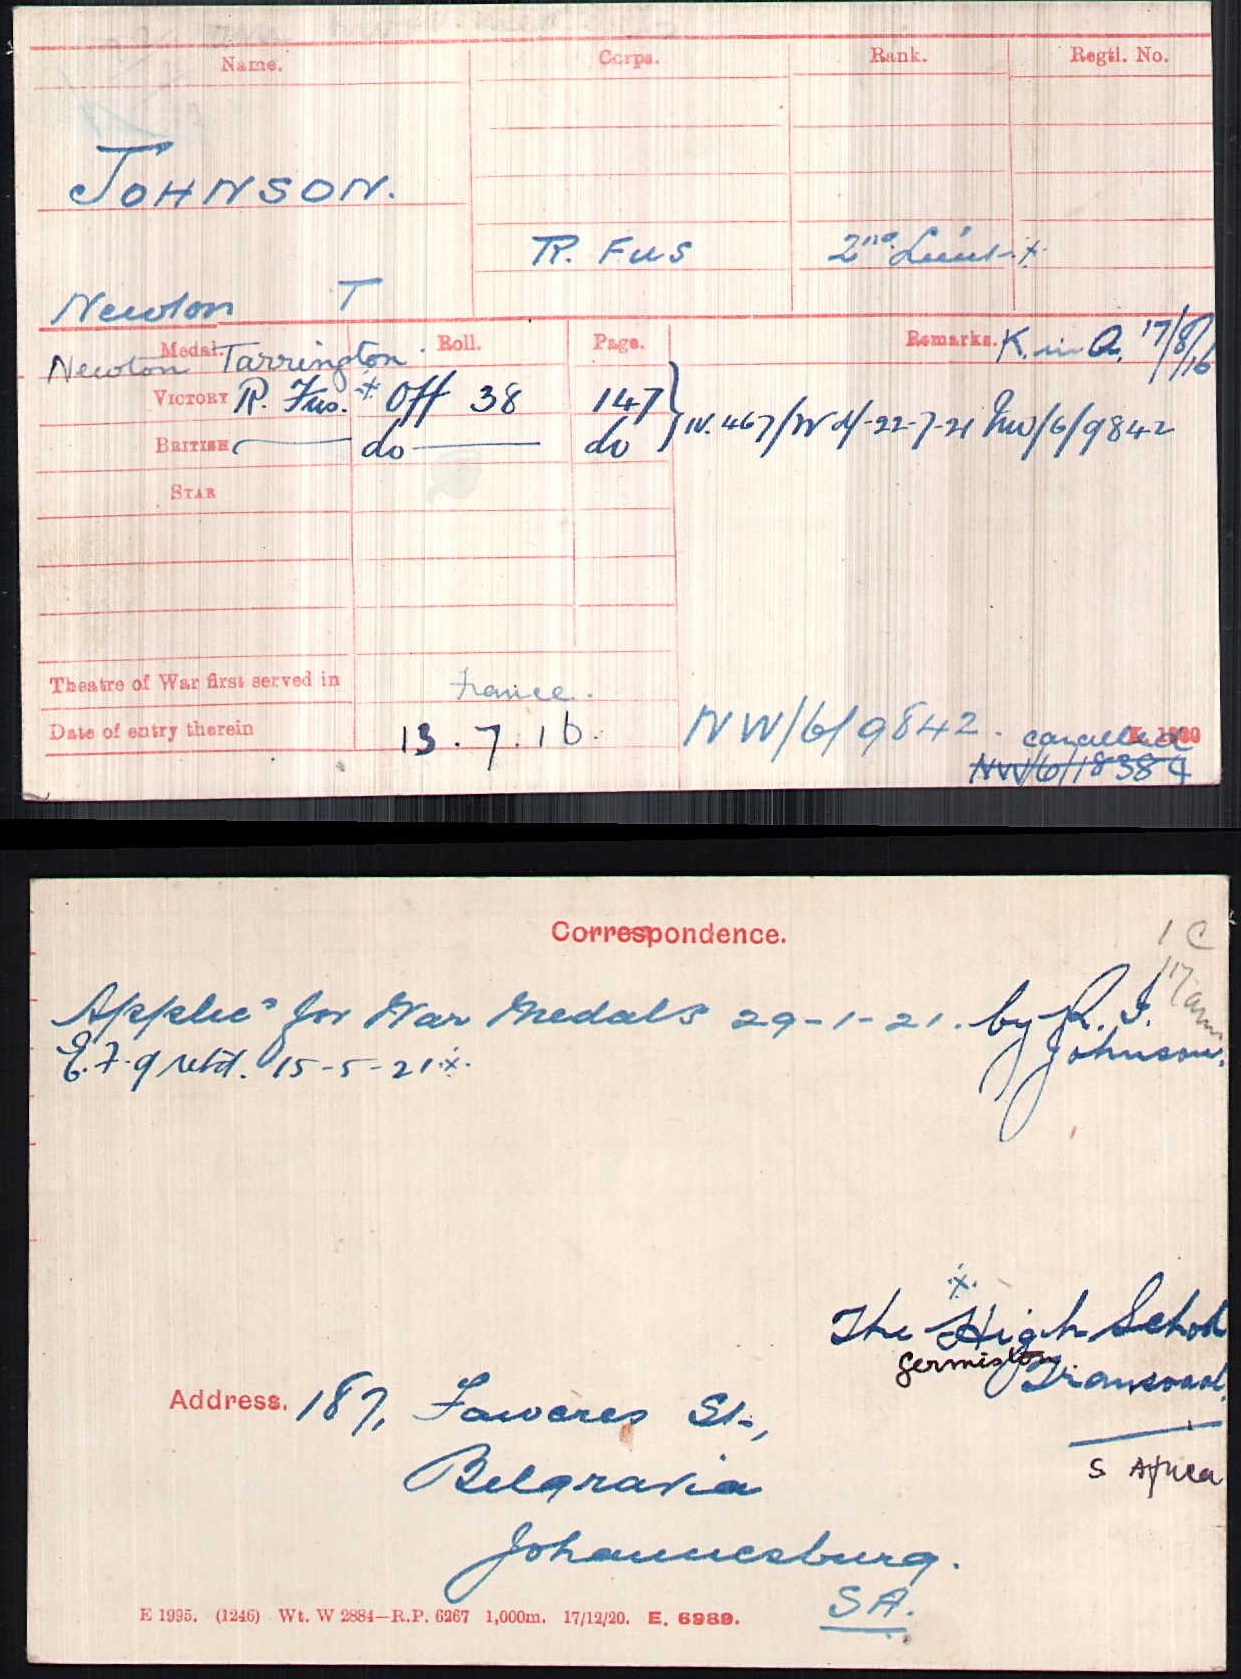 Name. Corps. Rank. Regtl. No.
JOHNSON.
R. Fus 2nd Lieut. x
Newton T
Medal. Roll. Page. Remarks. K. in A. 17/8/16
Newton Tarrington
VICTORY R. Fus. x Off 38 147
IV. 467/W d/-22-7-21 NW/6/9842
BRITISH do do
STAR
Theatre of War first served in France.
Date of entry therein 13.7.16.
NW/6/9842. cancelled
NW/6/18384
Correspondence.
1 C
Applicn for War Medals 29-1-21. by R. I. Johnson.
E.F.9 retd. 15-5-21.x.
x
The High School
Germiston Transvaal
Address. 187, Faweres St.,
S Africa
Belgravia
Johannesburg.
SA.
E 1995. (1246) Wt. W 2884—R.P. 6267 1,000m. 17/12/20. E. 6989.